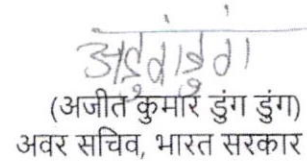 (अजीत कुमार डुंग डुंग)
अवर सचिव, भारत सरकार